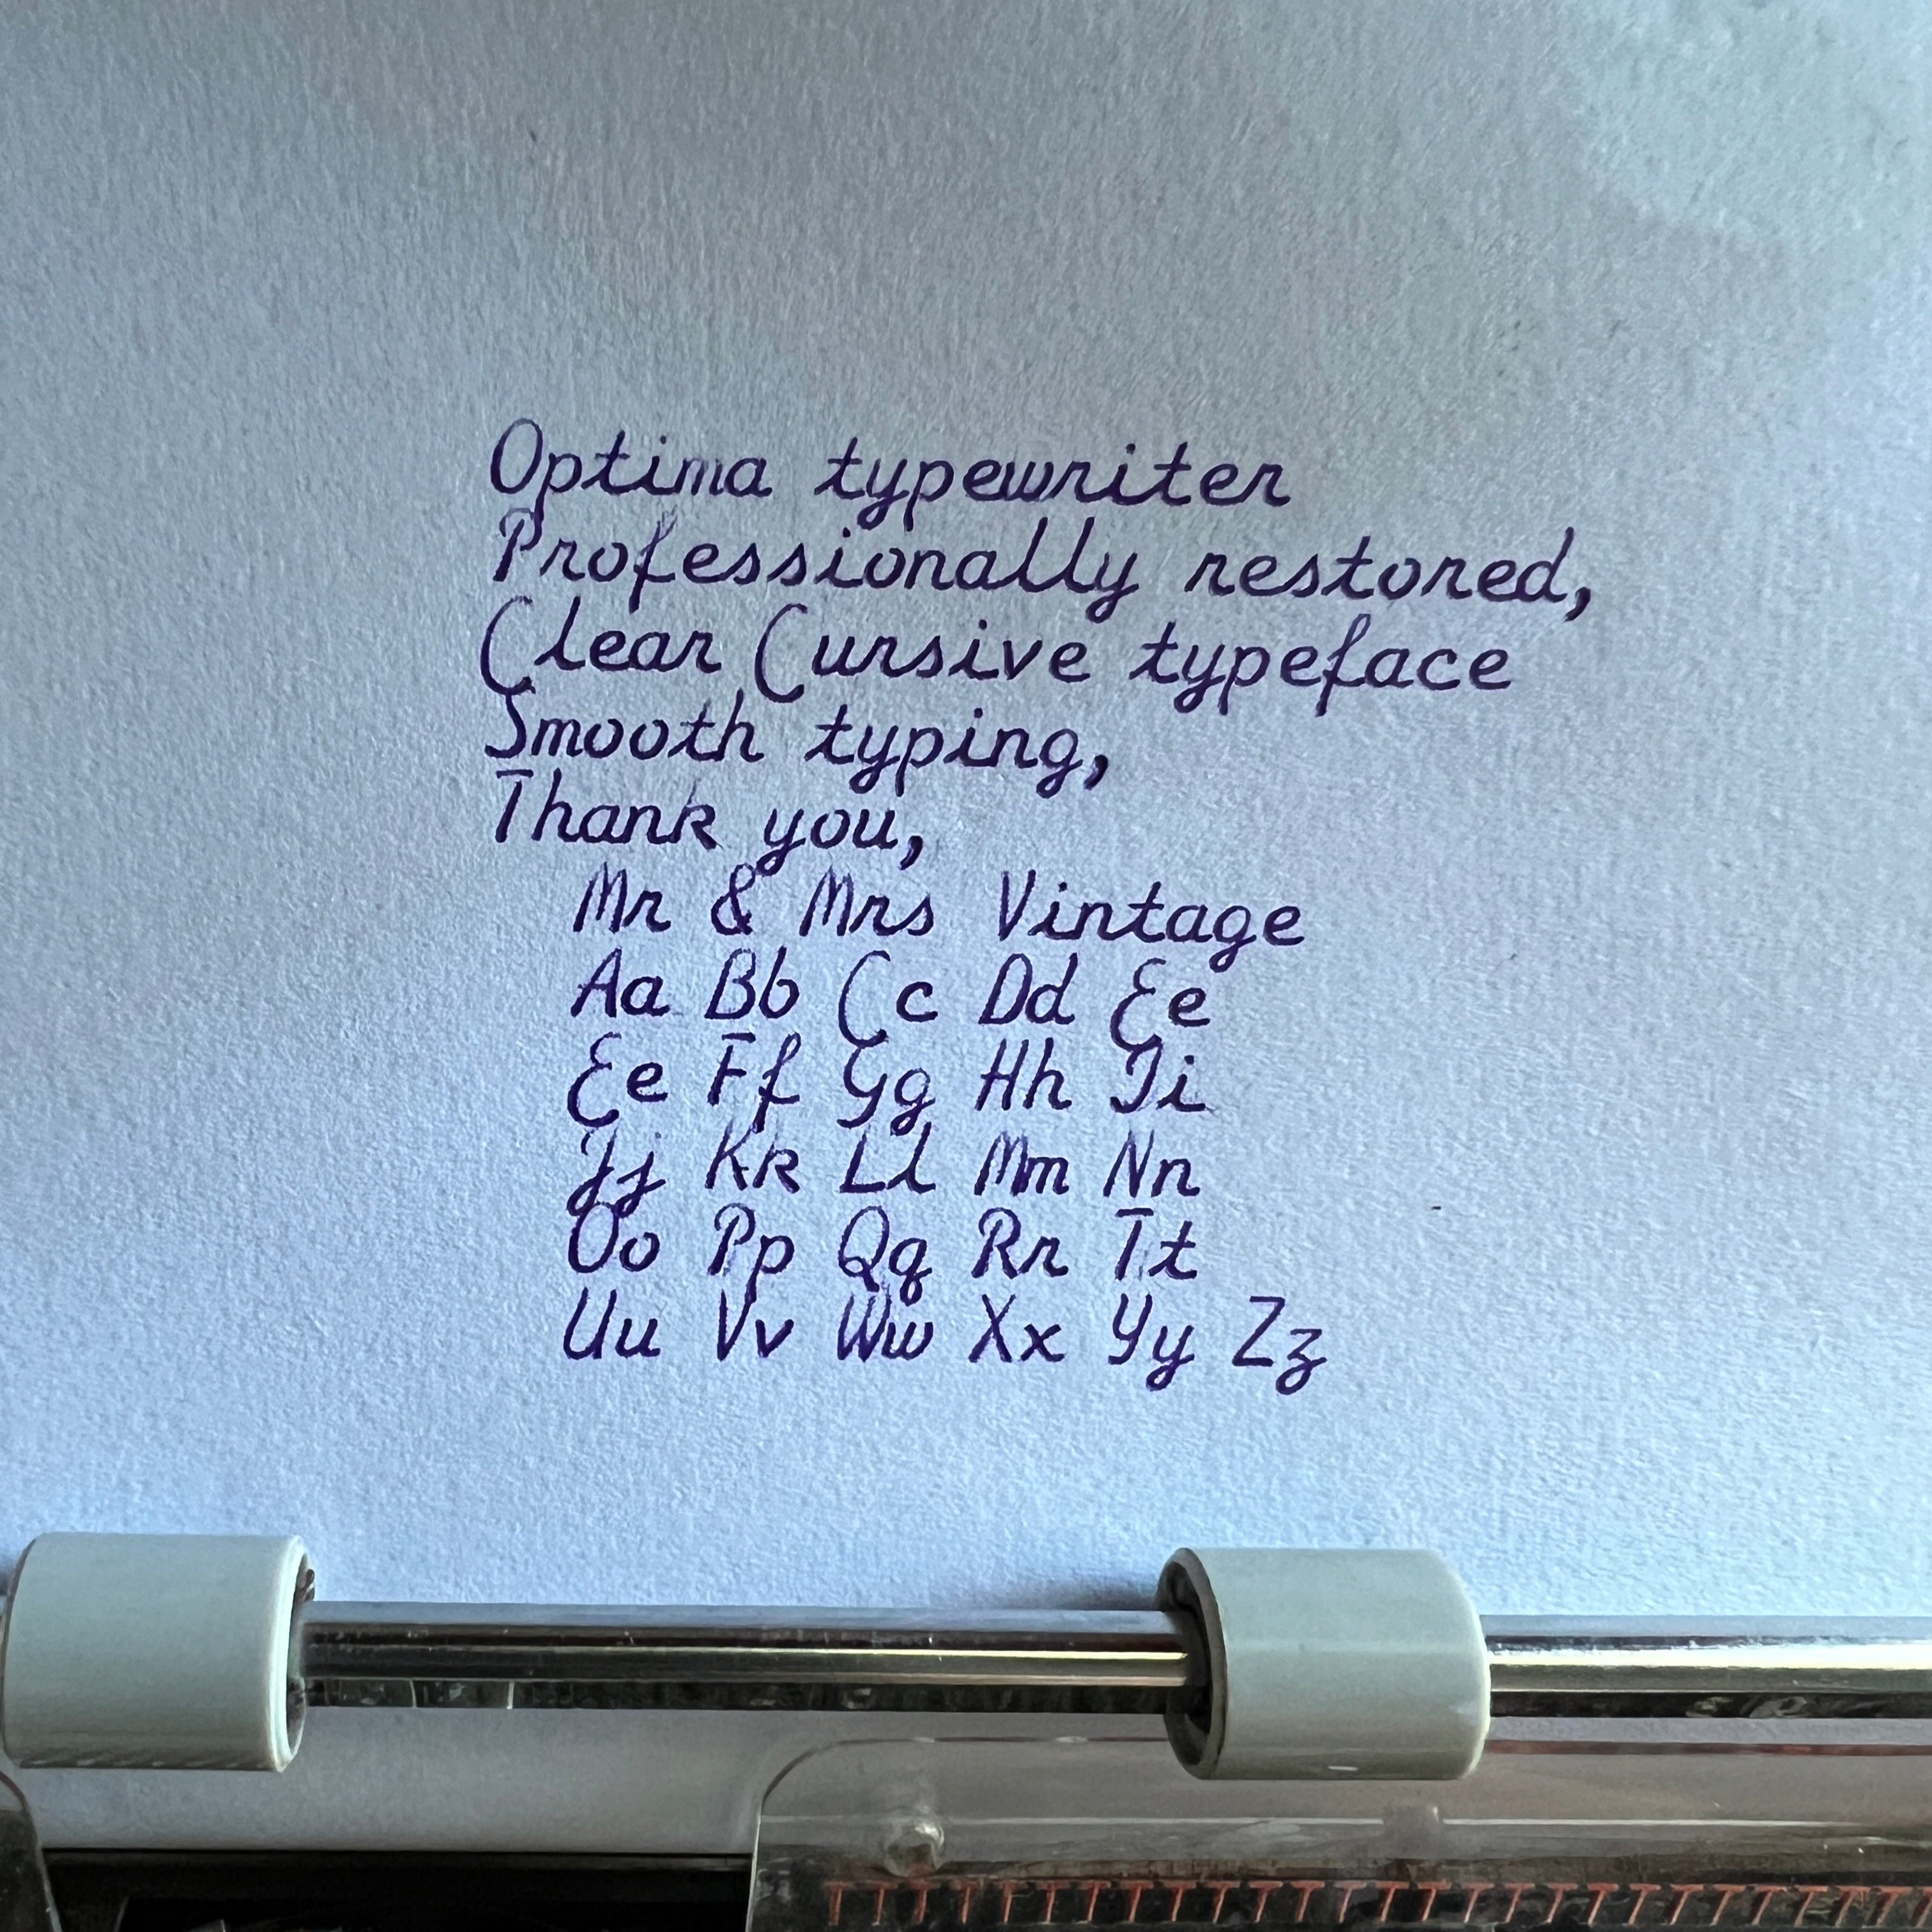 Optima typewriter
Professionally restored,
Clear Cursive typeface
Smooth typing,
Thank you,
Mr & Mrs Vintage
Aa Bb Cc Dd Ee
Ee Ff Gg Hh Ii
Jj Kk Ll Mm Nn
Oo Pp Qq Rr Tt
Uu Vv Ww Xx Yy Zz